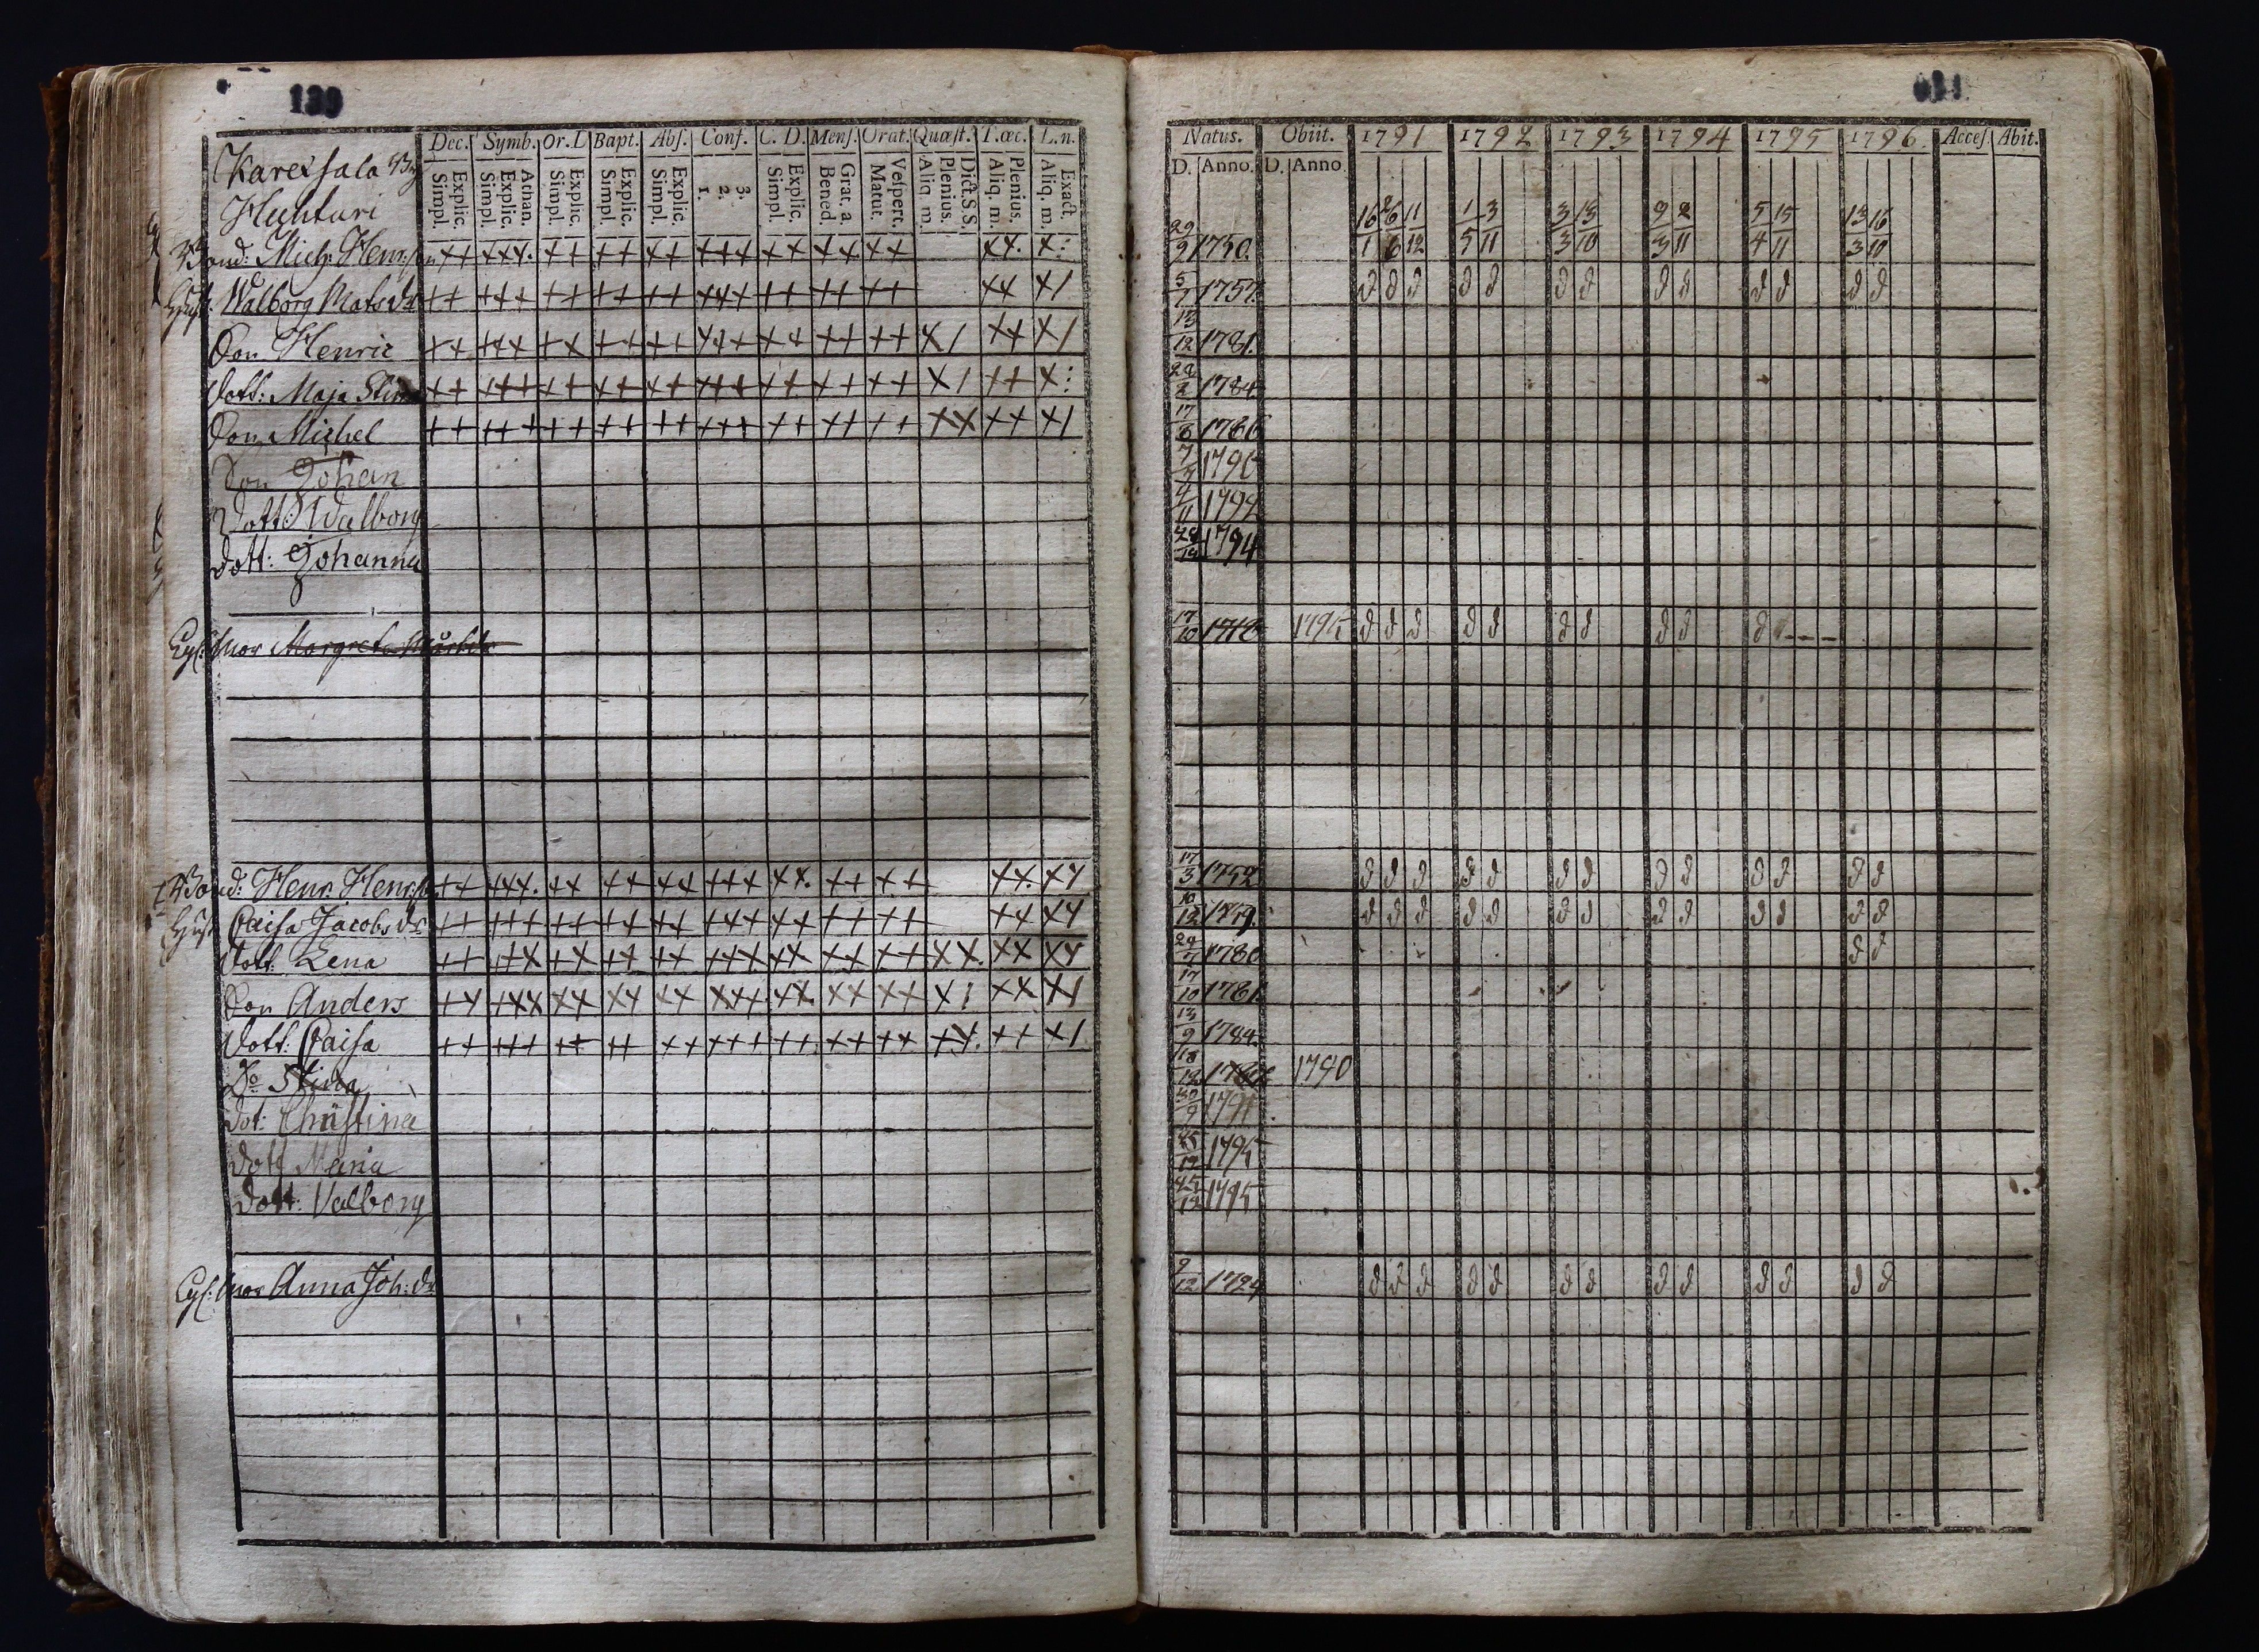 139
Dec. Symb. Or. D Bapt. Abs. Conf. C. D. Mens. Orat. Quæst. T. œc. L. n.
Explic. Simpl. Athan. Explic. Simpl. Explic. Simpl. Explic. Simpl. Explic. Simpl. 3. 2. 1. Explic. Simpl. Grat. a. Bened. Vespert. Matut. Dict. S.S. Plenius. Aliq. m. Plenius. Aliq. m. Exact. Aliq. m.
Karexsala By
Huhtari
Bond: Mich: Henr:son
Hust: Walborg Matsdr
Son Henric
Dott: Maja Stina
Son Michel
Son Johan
Dott: Walborg
Dott: Johanna
Mor Margreta
Bond: Henr. Henr:s
Hust Caisa Jacobs dr
Dott: Lena
Son Anders
Dott: Caisa
Do Stina
Dot: Christina
Dott Maria
Dott: Valborg
Mor Anna Joh: dr
Natus. Obiit. 1791 1792 1793 1794 1795 1796. Acces. Abit.
D. Anno. D. Anno
16/1 26/6 11/12 1/5 3/11 3/3 13/10 9/3 2/11 5/4 15/11 13/3 16/10
29/9 1750.
5/7 1757. d d d d d d d d d d d d d
13/12 1781.
1784
17/8 1786
1790
4/11
1794
17/10 1795 d d d d d d d d d d - - -
17/3 1752 d d d d d d d d d d d d d
10/12 1759. d d d d d d d d d d d d d
1780 d d
17/10 1781
13/9 1784.
18/12 1790
30/9 1791
1795
25/12 1795
9/12 1724 d d d d d d d d d d d d d